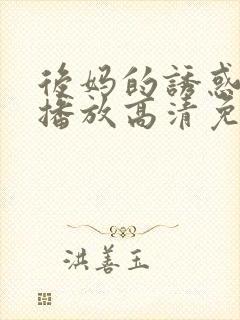 後妈的誘惑
播放高清免
洪善玉